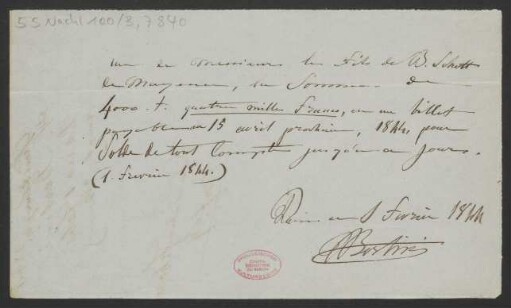 55 Nachl 100/B, 7840
de Messieurs les Fils de B. Schott
de Mayence, la Somme de
4000 f. quatre milles Francs, en un billet
payable au 15 avril prochain, 1844 pour
Solde de tout Compte jusqu'à ce jours.
(1 Fevrier 1844.)
1 Fevrier 1844